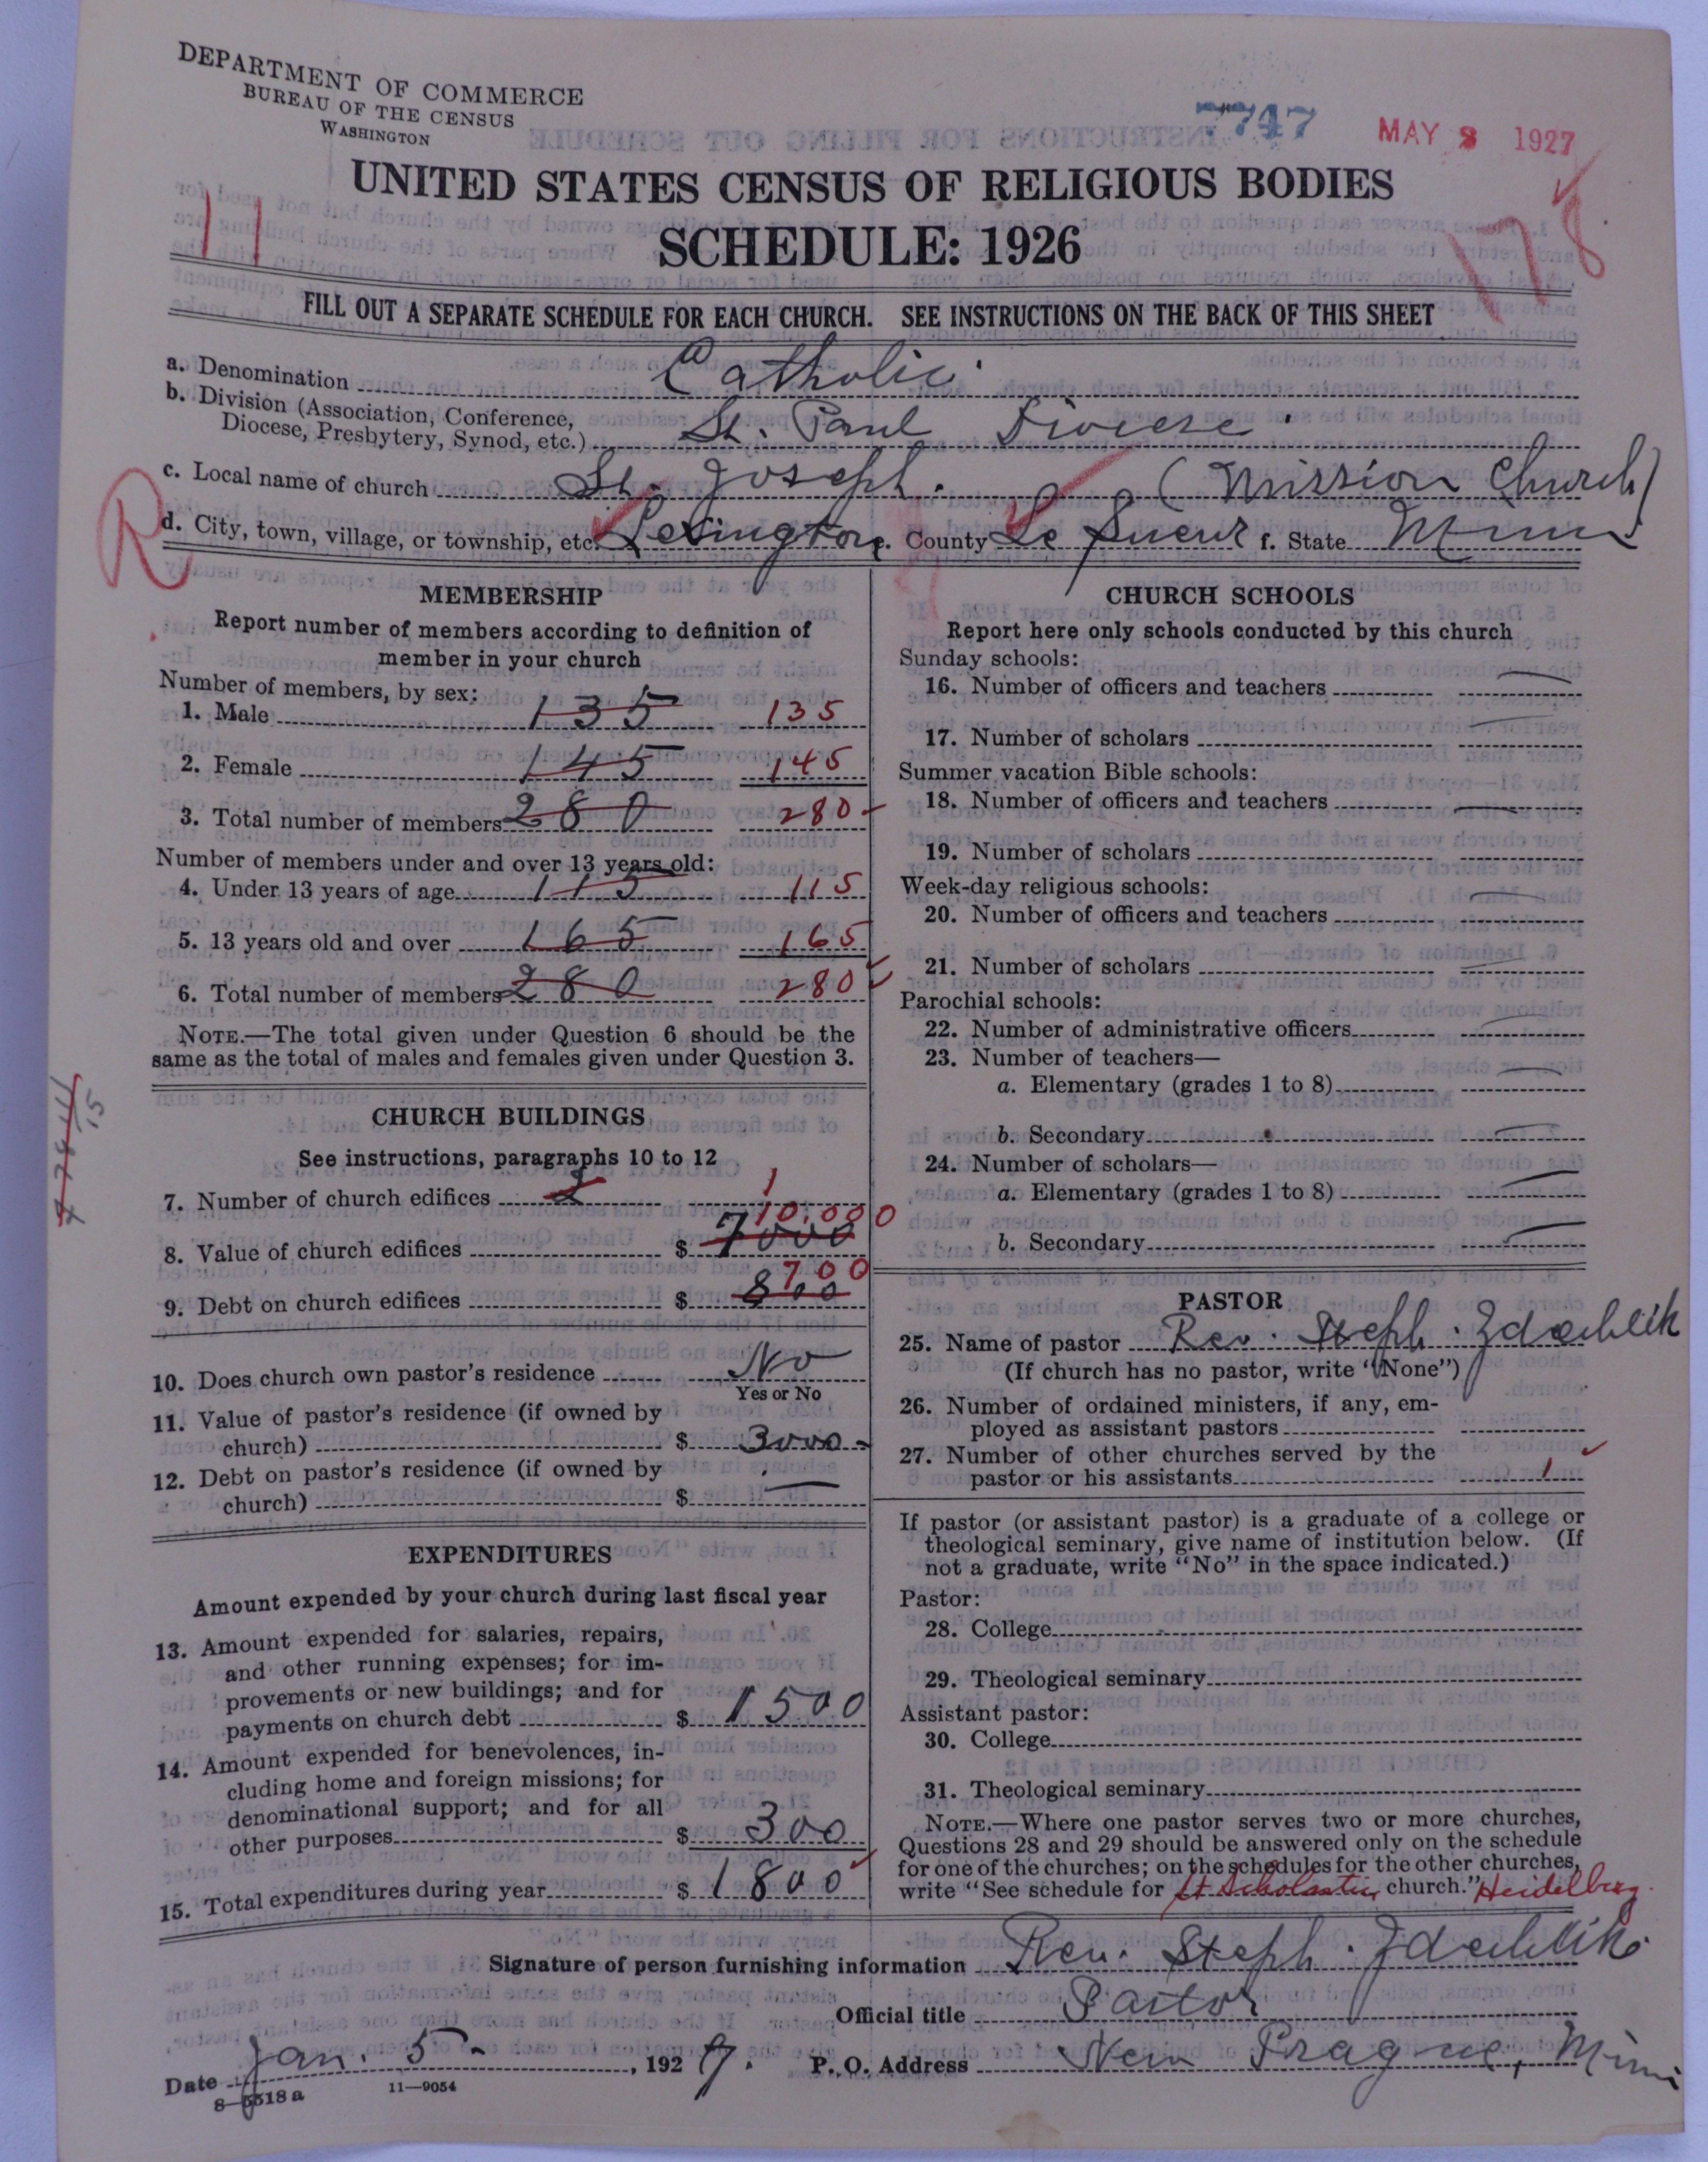 DEPARTMENT OF COMMERCE
BUREAU OF THE CENSUS
WASHINGTON
7747
MAY 2 1927
UNITED STATES CENSUS OF RELIGIOUS BODIES
11
SCHEDULE: 1926
178
FILL OUT A SEPARATE SCHEDULE FOR EACH CHURCH. SEE INSTRUCTIONS ON THE BACK OF THIS SHEET
a. Denomination Catholic
b. Division (Association, Conference,
Diocese, Presbytery, Synod, etc.) St. Paul Diocese.
c. Local name of church St. Joseph. (Mission Church)
R
d. City, town, village, or township, etc. Lexington e. County Le Sueur f. State Minn
MEMBERSHIP
Report number of members according to definition of
member in your church
Number of members, by sex:
1. Male 135 135
2. Female 145 145
3. Total number of members 280 280
Number of members under and over 13 years old:
4. Under 13 years of age 115 115
5. 13 years old and over 165 165
6. Total number of members 280 280
NOTE.—The total given under Question 6 should be the
same as the total of males and females given under Question 3.
CHURCH BUILDINGS
See instructions, paragraphs 10 to 12
7. Number of church edifices 2 1
8. Value of church edifices $ 7000 10,000
9. Debt on church edifices $ 800 700
10. Does church own pastor's residence No
Yes or No
11. Value of pastor's residence (if owned by
church) $ 3000-
12. Debt on pastor's residence (if owned by
church) $ —
15
EXPENDITURES
Amount expended by your church during last fiscal year
13. Amount expended for salaries, repairs,
and other running expenses; for im-
provements or new buildings; and for
payments on church debt $ 1500
14. Amount expended for benevolences, in-
cluding home and foreign missions; for
denominational support; and for all
other purposes $ 300
15. Total expenditures during year $ 1800
CHURCH SCHOOLS
Report here only schools conducted by this church
Sunday schools:
16. Number of officers and teachers —
17. Number of scholars —
Summer vacation Bible schools:
18. Number of officers and teachers —
19. Number of scholars
Week-day religious schools:
20. Number of officers and teachers —
21. Number of scholars —
Parochial schools:
22. Number of administrative officers —
23. Number of teachers—
a. Elementary (grades 1 to 8) —
b. Secondary —
24. Number of scholars—
a. Elementary (grades 1 to 8) —
b. Secondary —
PASTOR
25. Name of pastor Rev. Steph. Zdechlik
(If church has no pastor, write "None")
26. Number of ordained ministers, if any, em-
ployed as assistant pastors
27. Number of other churches served by the
pastor or his assistants 1
If pastor (or assistant pastor) is a graduate of a college or
theological seminary, give name of institution below. (If
not a graduate, write "No" in the space indicated.)
Pastor:
28. College
29. Theological seminary
Assistant pastor:
30. College
31. Theological seminary
NOTE.—Where one pastor serves two or more churches,
Questions 28 and 29 should be answered only on the schedule
for one of the churches; on the schedules for the other churches,
write "See schedule for St Scholastica church." Heidelberg
Signature of person furnishing information Rev. Steph. Zdechlik
Official title Pastor
Date Jan. 5-, 1927. P. O. Address New Prague, Minn
8—5518 a 11—9054